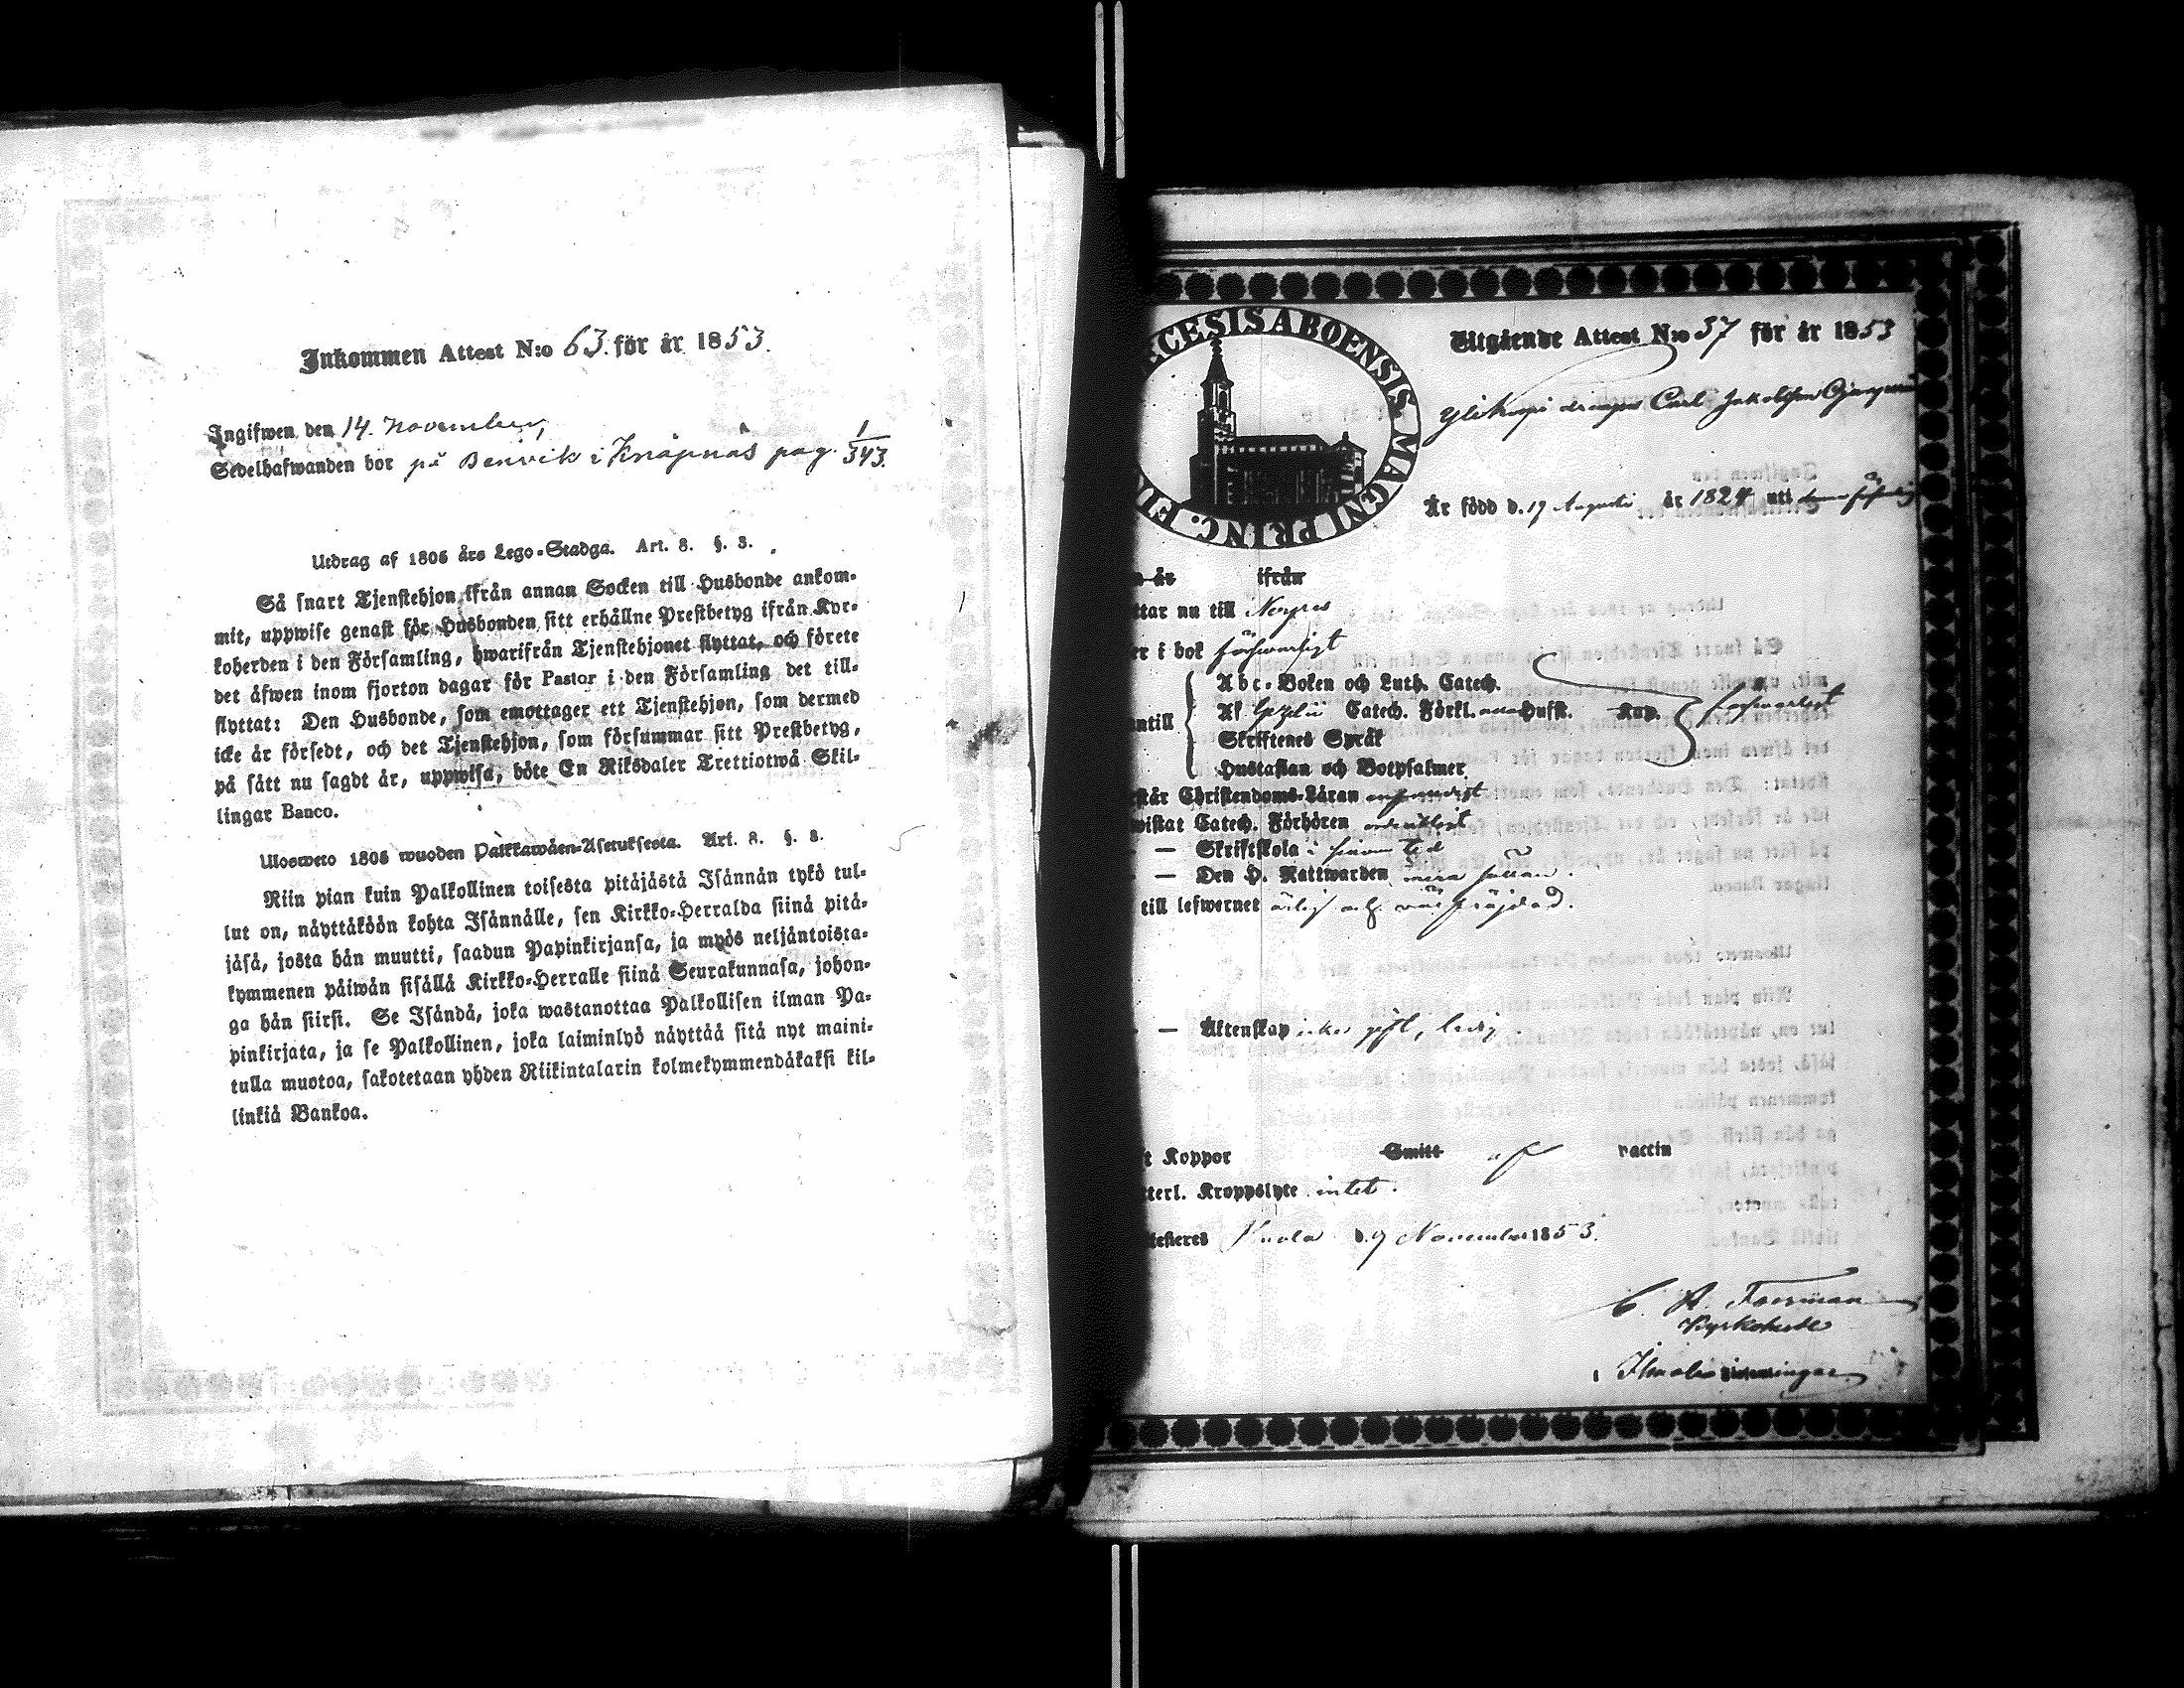 Inkommen Attest N:o 63. för år 1853.
Ingifwen den 14. November,
Sedelhafwanden bor på Benvik i Knäpnäs pag. 1/343.
Utdrag af 1805 års Lego-Stadga. Art. 8. §. 3.
Så snart Tjenstehjon ifrån annan Socken till Husbonde ankom-
mit, uppwise genast för Husbonden sitt erhållne Prestbetyg ifrån Kyr-
koherden i den Församling, hwarifrån Tjenstehjonet flyttat, och förete
det äfwen inom fjorton dagar för Pastor i den Församling det till-
flyttat: Den Husbonde, som emottager ett Tjenstehjon, som dermed
icke är försedt, och det Tjenstehjon, som försummar sitt Prestbetyg,
på sätt nu sagdt är, uppwisa, böte En Riksdaler Trettiotwå Skil-
lingar Banco.
Ulosweto 1805 wuoden Palkkawäen-Asetuksesta. Art. 8. §. 3.
Niin pian kuin Palkollinen toisesta pitäjästä Isännän tykö tul-
lut on, näyttäköön kohta Isännälle, sen Kirkko-Herralda siinä pitä-
jäsä, josta hän muutti, saadun Papinkirjansa, ja myös neljäntoista-
kymmenen päiwän sisällä Kirkko-Herralle siinä Seurakunnasa, johon-
ga hän siirsi. Se Isändä, joka wastanottaa Palkollisen ilman Pa-
pinkirjata, ja se Palkollinen, joka laiminlyö näyttää sitä nyt maini-
tulla muotoa, sakotetaan yhden Riikintalarin kolmekymmendäkaksi kil-
linkiä Bankoa.
CESIS ABOENSIS MAGNI PRINC. FI
Utgående Attest N:o 37 för år 1853
drängen Carl Jakobsson
Är född d. 19 Augusti år 1824 uti denna
n år ifrån
ttar nu till
er i bok försvarligt
Abc-Boken och Luth. Catech.
Af Catech. Förkl. Hust. Kap. försvarligt
ntill
Skriftenes Språk
Hustaflan och Botpsalmer
står Christendoms-Läran
wistat Catech. Förhören ordentligt
— Skriftskola i sinom tid
— Den H. Nattwarden sällan.
till lefwernet ärlig och
— Äktenskap ledig
t Koppor Smitt af vaccin
terl. Kroppslyte intet.
testeres d. 9 November 1853.
C. A. Forsman
Kyrkoherde